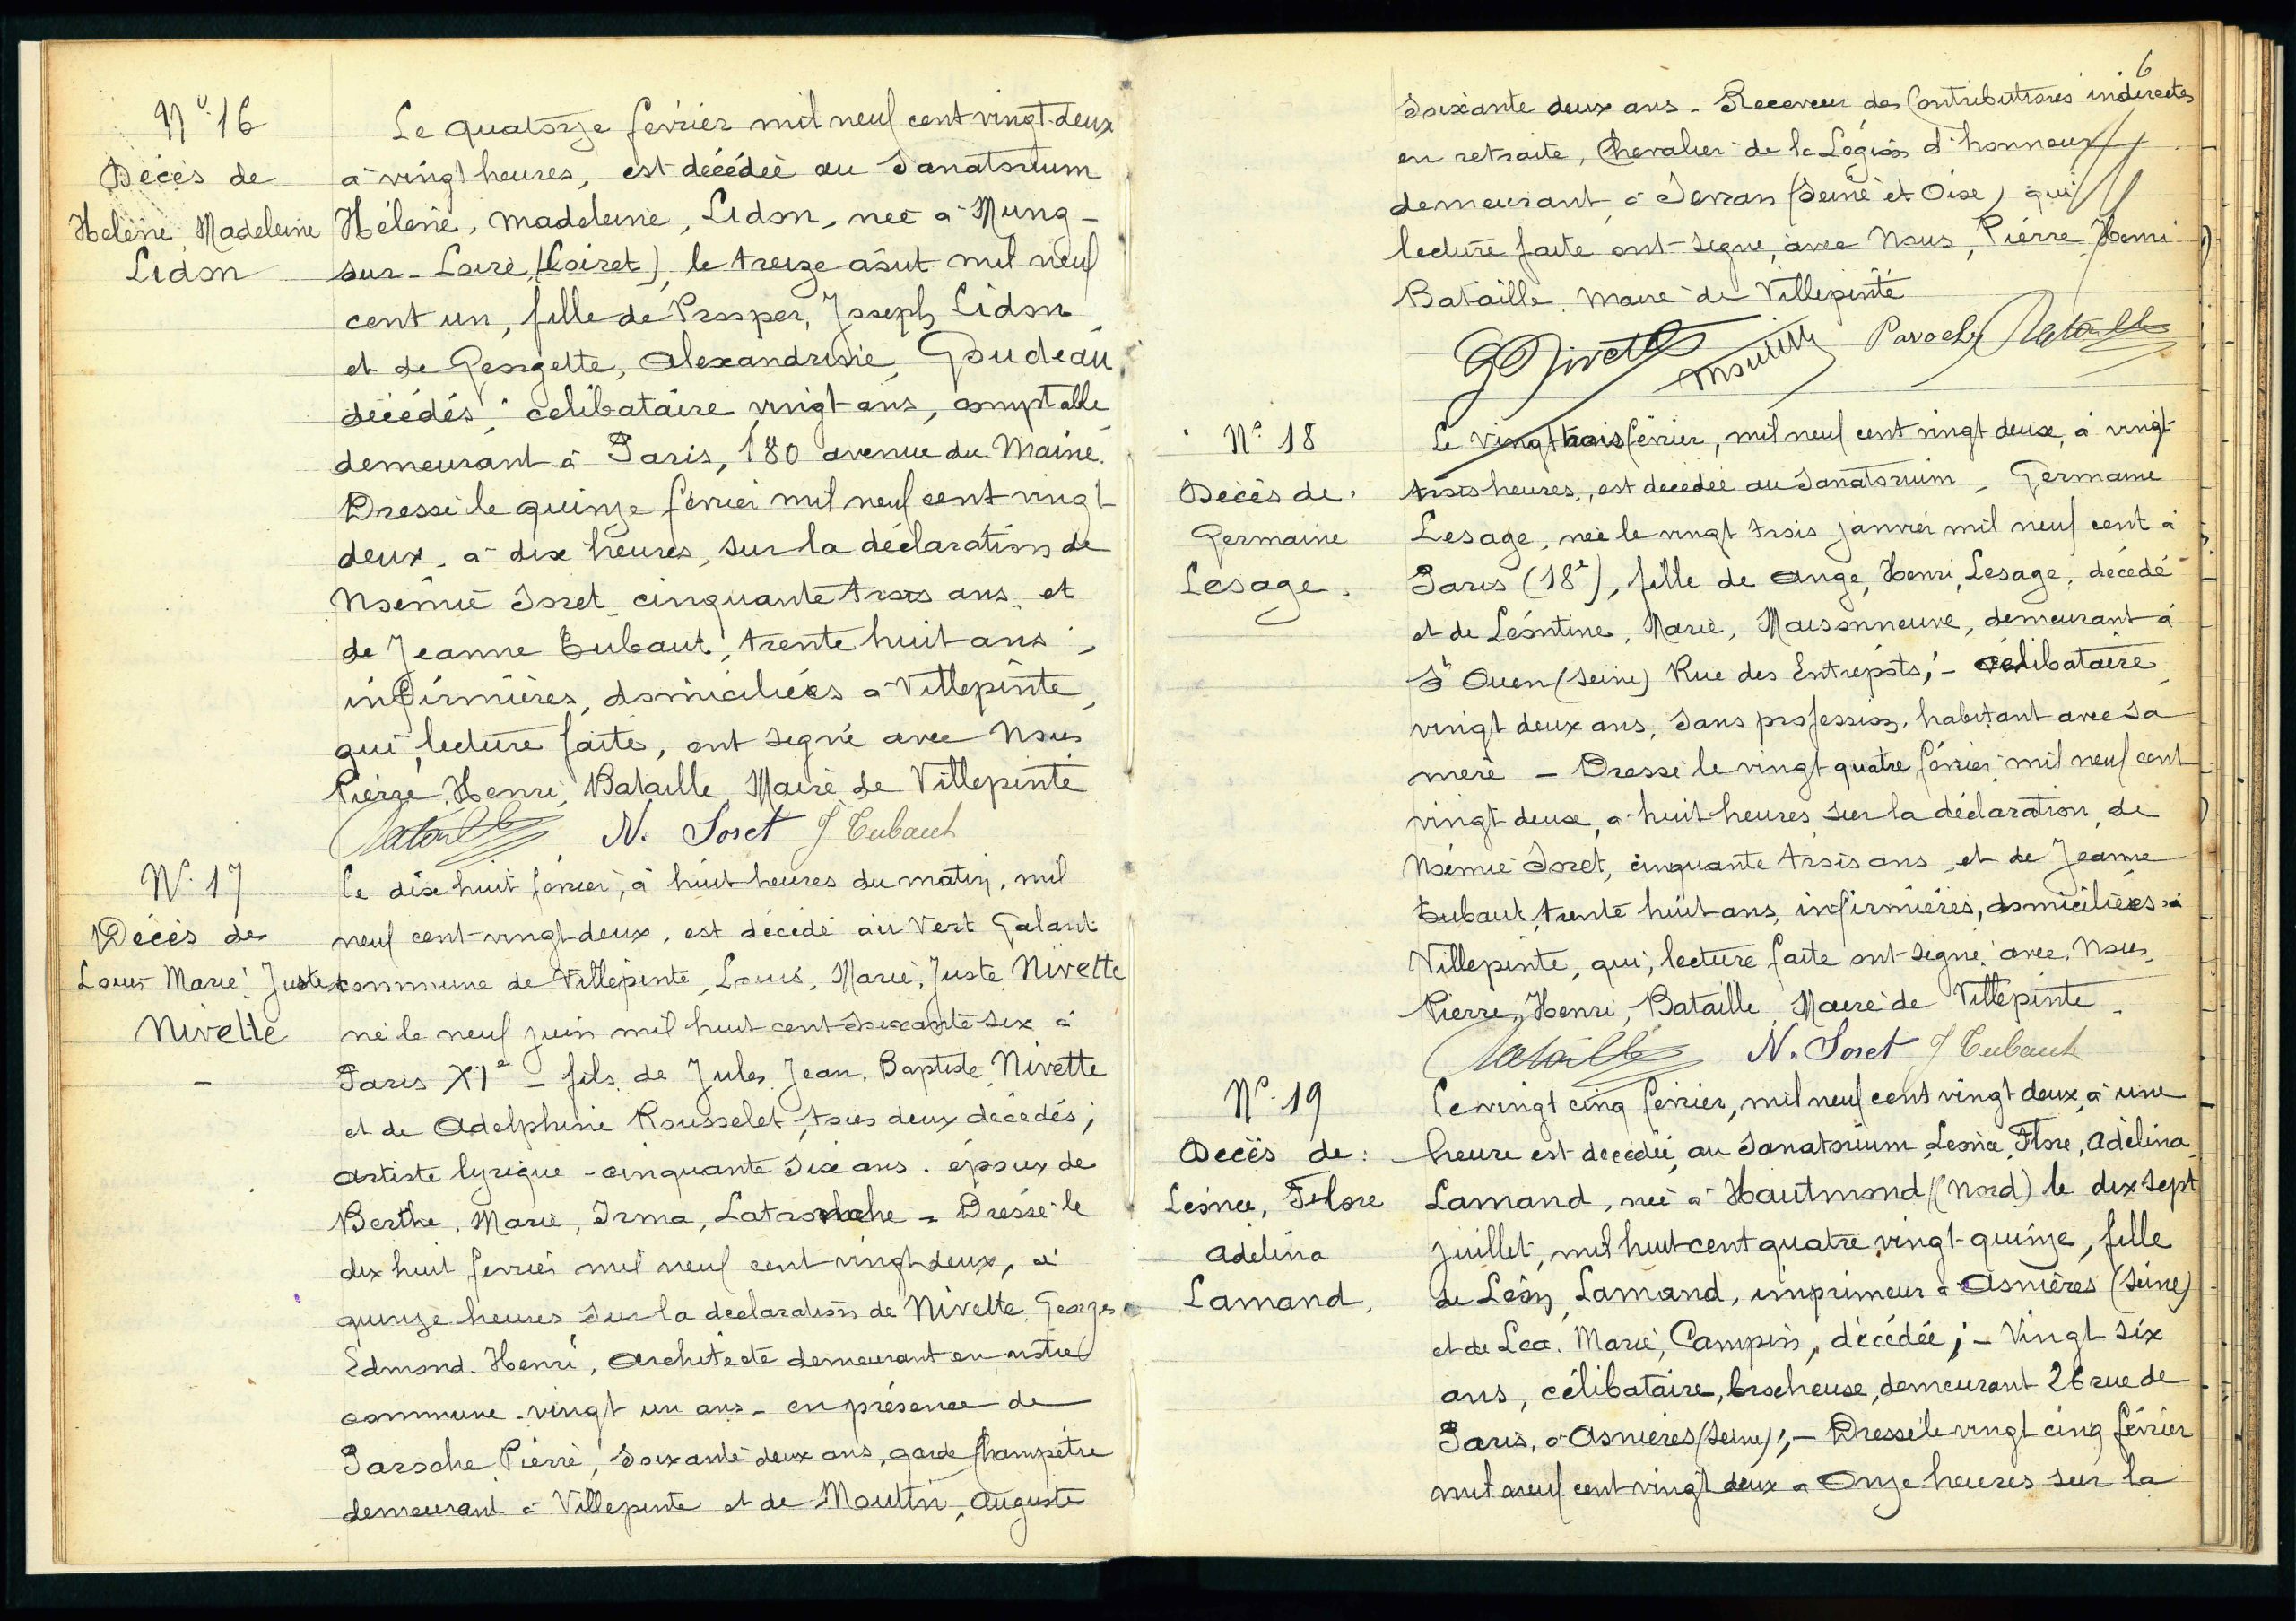 Nº 16
Décès de
Hélène, Madeleine
Lidon
Le quatorze février mil neuf cent vingt-deux
à vingt heures, est décédée au Sanatorium
Hélène, Madeleine, Lidon, née à Mung-
sur-Loire (Loiret), le treize août mil neuf
cent un, fille de Prosper, Joseph Lidon
et de Georgette, Alexandrine, Goudeau,
décédés; célibataire, vingt ans, comptable
demeurant à Paris, 180 avenue du Maine.
Dressé le quinze février mil neuf cent vingt
deux, à dix heures, sur la déclaration de
Noémie Soret, cinquante trois ans, et
de Jeanne Tubaut, trente huit ans,
infirmières, domiciliées à Villepinte,
qui, lecture faite, ont signé avec Nous
Pierre, Henri, Bataille, Maire de Villepinte
Bataille N. Soret J Tubaut
Nº 17
Décès de
Louis Marie, Juste
Nivette
-
Le dix huit février, à huit heures du matin, mil
neuf cent vingt-deux, est décédé au Vert Galant
commune de Villepinte, Louis, Marie, Juste Nivette
né le neuf juin mil huit cent soixante six à
Paris XIe - fils de Jules, Jean, Baptiste, Nivette
et de Adelphine Rousselet, tous deux décédés;
artiste lyrique - cinquante six ans. époux de
Berthe, Marie, Irma, - Dressé le
dix huit février mil neuf cent vingt deux, à
quinze heures sur la déclaration de Nivette, Georges
Edmond, Henri, Architecte demeurant en notre
commune - vingt un ans - en présence de
Paroche Pierre, soixante deux ans, garde champêtre
demeurant à Villepinte et de Moutin, Auguste
6
soixante deux ans - Receveur des Contributions indirectes
en retraite, Chevalier de la Légion d'honneur
demeurant à Sevran (Seine et Oise) qui
lecture faite ont signé, avec Nous, Pierre, Henri
Bataille, Maire de Villepinte
G Nivette Moutin Paroche Bataille
Nº 18
Décès de
Germaine
Lesage.
Le vingt trois février, mil neuf cent vingt deux, à vingt
trois heures, est décédée au Sanatorium, Germaine
Lesage, née le vingt trois janvier mil neuf cent à
Paris (18e), fille de Ange, Henri, Lesage, décédé
et de Léontine, Marie, Maisonneuve, demeurant à
St Ouen (Seine) Rue des Entrepôts; - célibataire,
vingt deux ans, sans profession, habitant avec sa
mère - Dressé le vingt quatre février mil neuf cent
vingt deux, à huit heures sur la déclaration, de
Noémie Soret, cinquante trois ans, et de Jeanne
Tubaut, trente huit ans, infirmières, domiciliées à
Villepinte, qui, lecture faite ont signé avec, Nous,
Pierre, Henri, Bataille, Maire de Villepinte.
Bataille N. Soret J Tubaut
Nº 19
Décès de:
Léonie, Flore
Adélina
Lamand,
Le vingt cinq février, mil neuf cent vingt deux, à une
heure est décédée, au Sanatorium, Léonie, Flore, Adélina,
Lamand, née à Hautmond (Nord) le dix sept
juillet, mil huit cent quatre vingt-quinze, fille
de Léon, Lamand, imprimeur à Asnières (Seine)
et de Léa, Marie, Campin, décédée; - Vingt six
ans, célibataire, brocheuse, demeurant 26 rue de
Paris, à Asnières (Seine); - Dressé le vingt cinq février
mil neuf cent vingt deux à Onze heures sur la